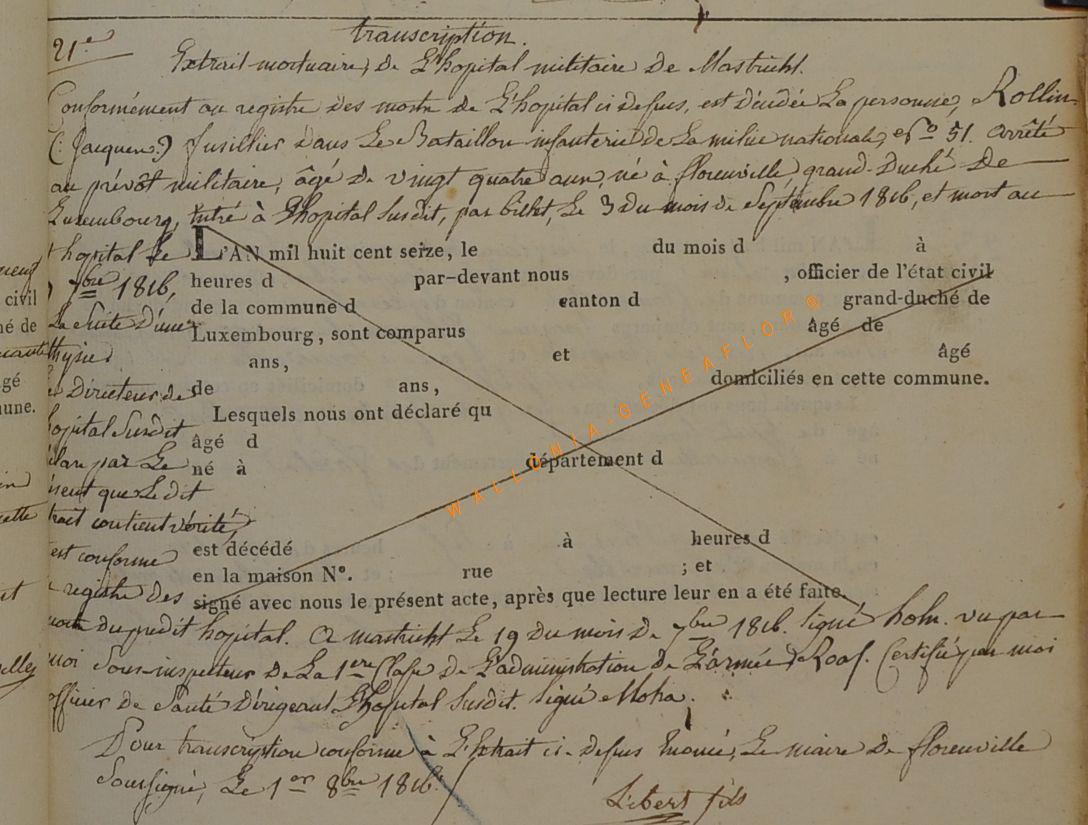 21.e
transcription.
Extrait mortuaire, de L'hopital militaire de Mastricht.
Conformément au registre des morts de L'hopital ci defsus, est décédée La personne, Rollin
(: Jacques :) fusillier dans Le Bataillon infanterie de La milice nationale, N.o 51. arrêté
au prévôt militaire, âgé de vingt quatre ans, né à florenville grand-Duché De
Luxembourg, Entré à L'hopital Susdit, par billet, Le 3 du mois de Septembre 1816, et mort au
hopital Le
7bre 1816,
La Suite d'une
thysie
Directeur de
hopital Susdit
par Le
que Le dit
contient vérité,
est conforme
registre des
L'AN mil huit cent seize, le du mois d à
heures d par-devant nous , officier de l'état civil
de la commune d canton d grand-duché de
Luxembourg, sont comparus âgé de
ans, et âgé
de ans, domiciliés en cette commune.
Lesquels nous ont déclaré qu
âgé d
né à département d
est décédé à heures d
en la maison N°. rue ; et
signé avec nous le présent acte, après que lecture leur en a été faite.
du predit hopital. a mastricht Le 19 du mois de 7bre 1816. signé holm. vu par
moi Sous-inspecteur De La 1ere Clafse de L'administration de L'armée, Roaf. Certifié par moi
officier de Santé Dirigeant L'hopital Susdit. Signé Moha.
Pour transcription conforme à L'Extrait ci-defsus Enoncé, Le maire de florenville
Soufsigné, Le 1er 8bre 1816.
Libert fils
WALLONIA-GENEAFLOR®
civil
né de
gé
une.